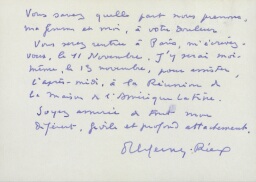 Vous savez quelle part nous prenons,
ma femme et moi, à votre douleur.
Vous serez rentrée à Paris, m'écrivez-
vous, le 11 Novembre. J'y serai moi-
même, le 13 novembre, pour assister,
l'après-midi, à la Réunion de
la Maison de l'Amérique Latine.
Soyez assurée de tout mon
déférent, fidèle et profond attachement.